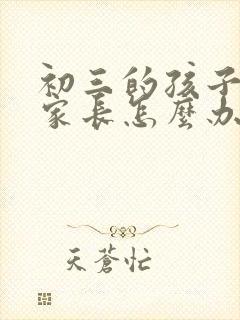 初三的孩子
家長怎麼办
天蒼忙